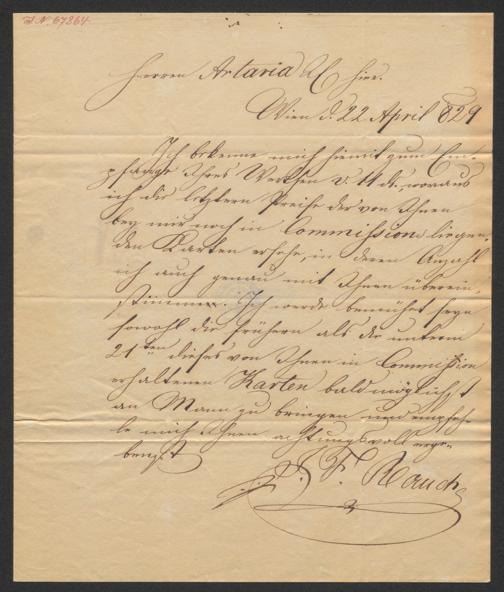 I.N. 67864
Herren Artaria & C hier.
Wien d. 22 April 829
Ich bekenne mich hiemit zum Em-
pfange Ihres Werthen v. 14 di, woraus
ich die letztern Preise der von Ihnen
bey mir noch in Commission liegen-
den Karten ersehe, in deren Anzahl
ich auch genau mit Ihnen überein-
stimme. Ich werde bemüht seyn
sowohl die frühern als die unterm
21ten dieses von Ihnen in Commission
erhaltenen Karten baldmöglichst
an Mann zu bringen und empfeh-
le mich Ihnen achtungsvoll erge-
benst
F. Rauch